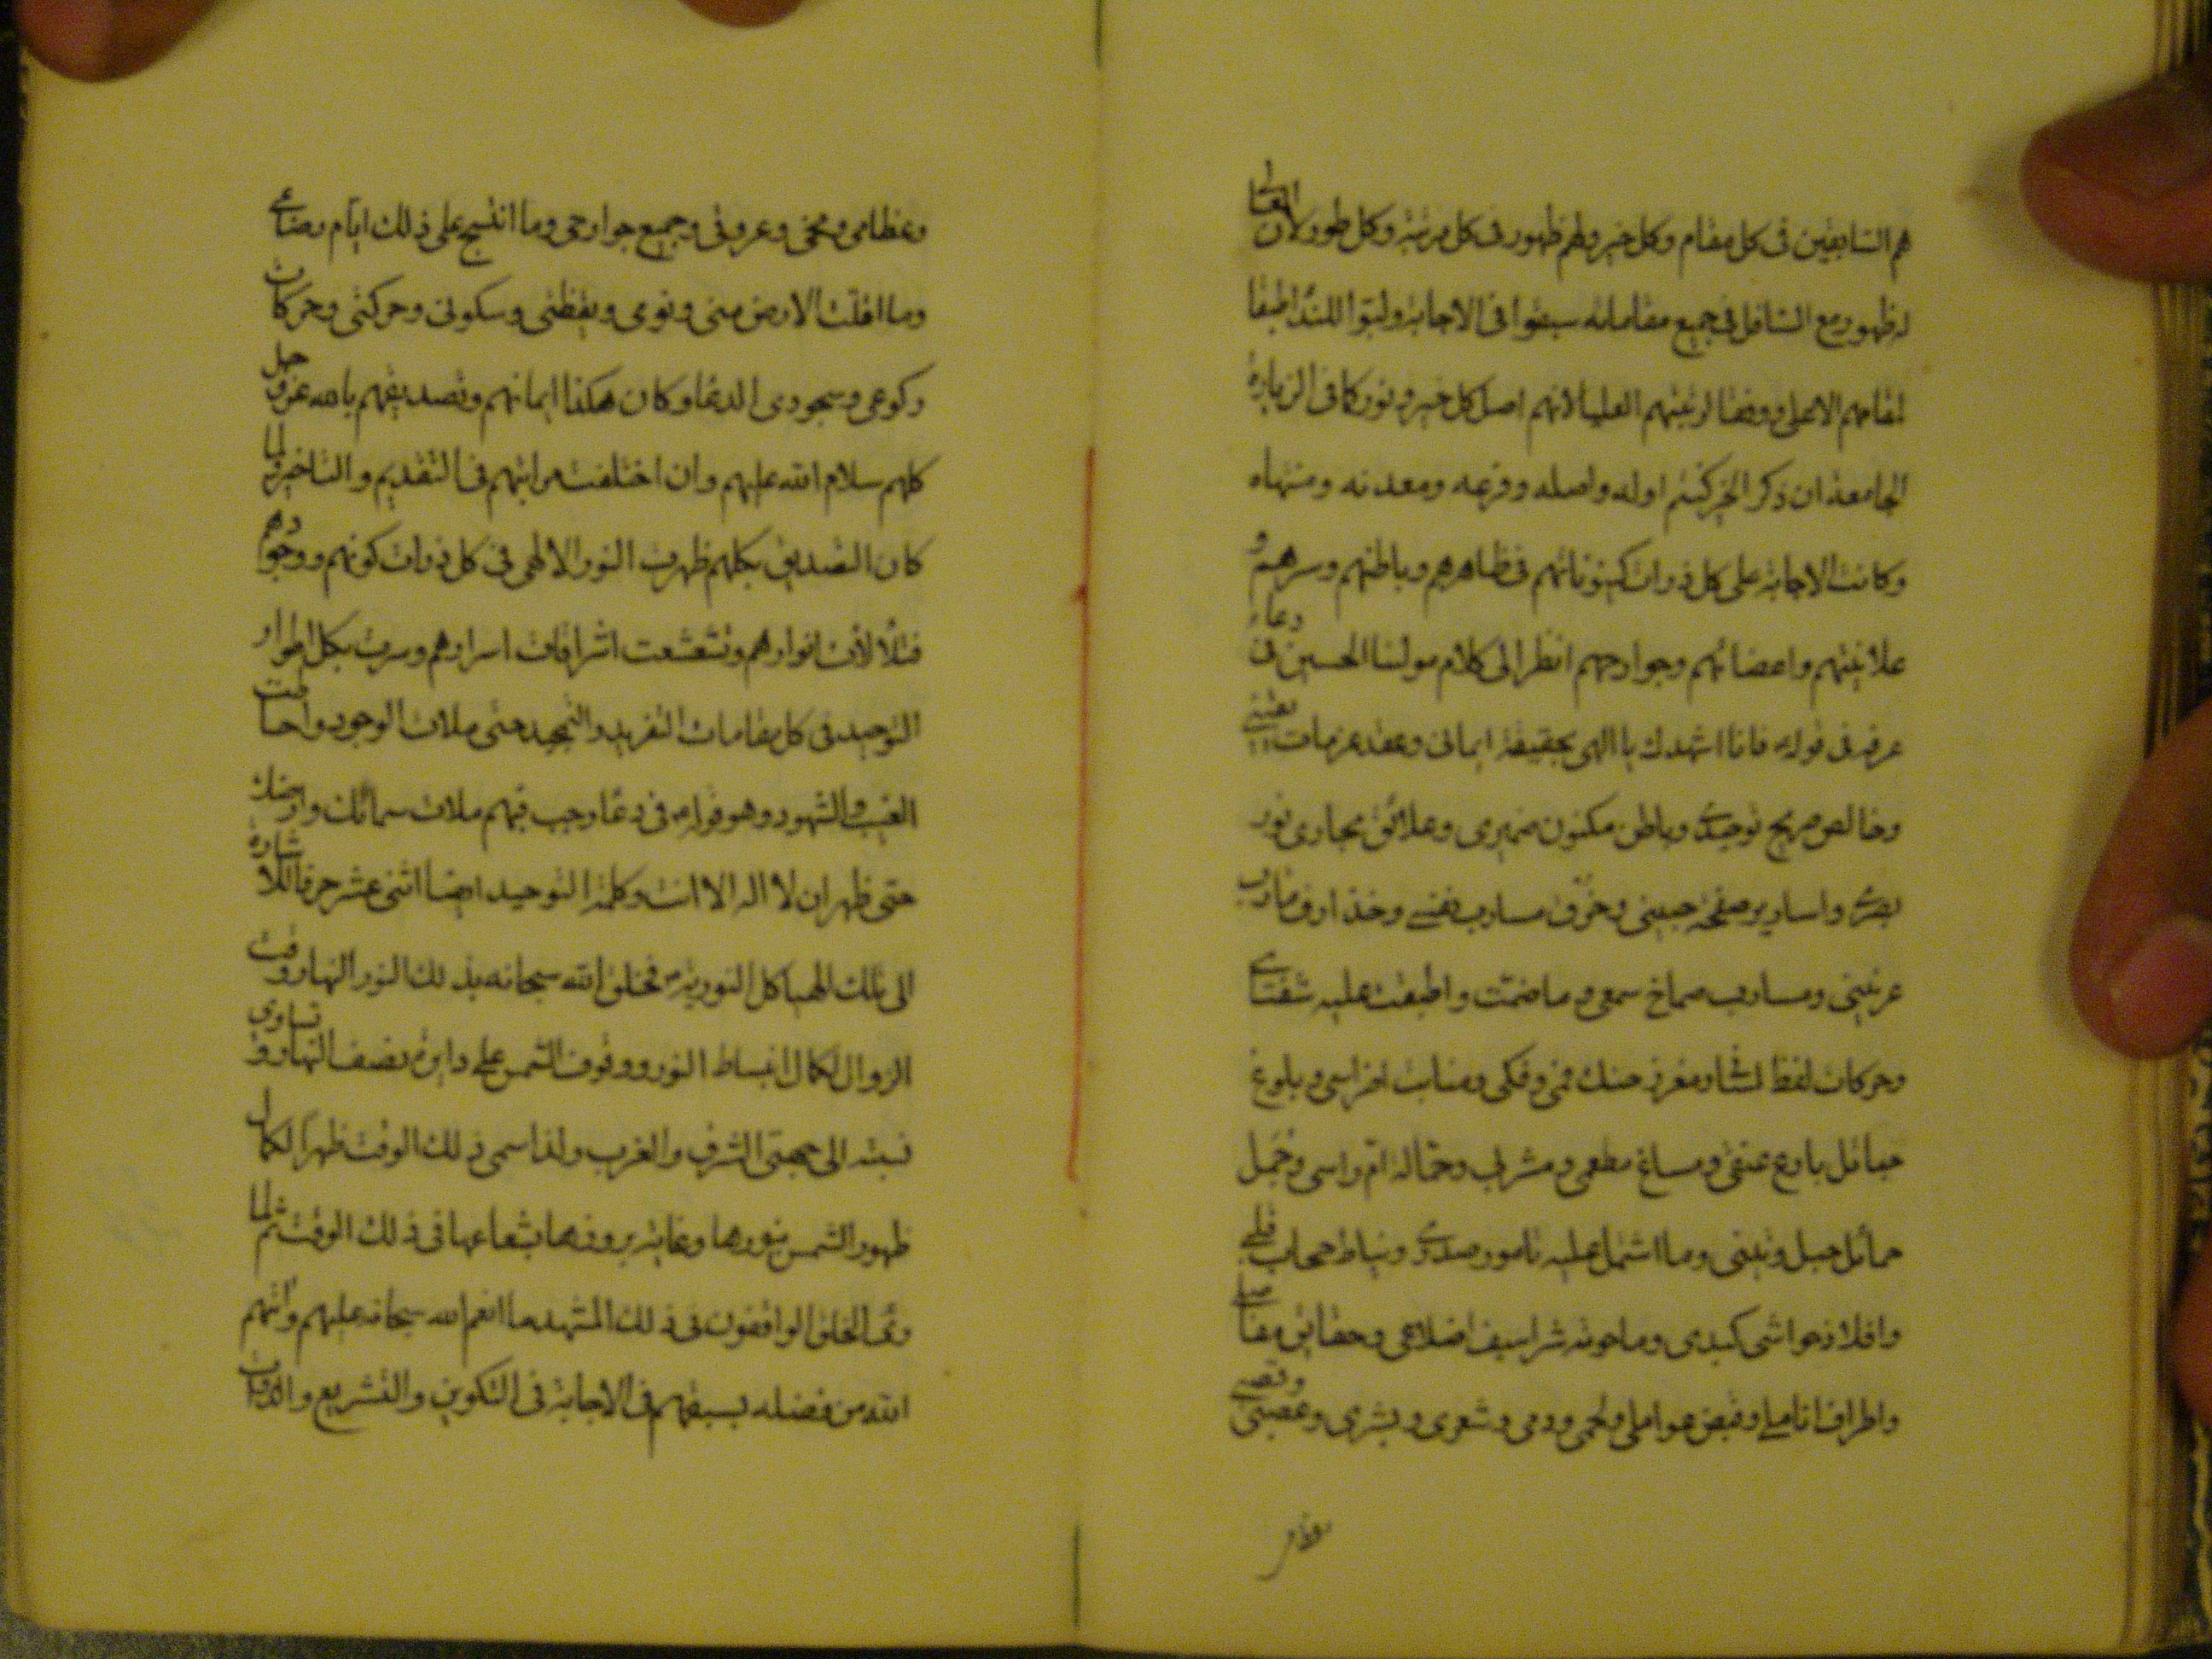 هم السابقين فى كل مقام وكل خير ولهم ظهور فى كل مرتبة وكل طور لان العالى
له ظهور مع السافل فى جميع مقاماته سبقوا فى الاجابة ولبوا للنداء طبقا
لمقامهم الاعلى ووفقا لرتبتهم العليا لانهم اصل كل خير ونور كما فى الزيارة
الجامعة ان ذكر الخير كنتم اوله واصله وفرعه ومعدنه ومنتهاه
وكانت الاجابة على كل ذرات كينوناتهم فى ظاهرهم وباطنهم وسرهم و
علانيتهم واعضائهم وجوارحهم انظر الى كلام مولينا الحسين فى دعاء
عرفه فى قوله فانا اشهدك يا الهى بحقيقة ايمانى وعقد عزمات يقينى
وخالص صريح توحيدى وباطن مكنون ضميرى وعلائق مجارى نور
بصرى واسارير صفحة جبينى وخرق مسارب نفسى وخذاريف مارن
عرنينى ومسارب صماخ سمعى وما ضمت واطبقت عليه شفتاى
وحركات لفظ لسانى ومغرز حنك فمى وفكى ومنابت اضراسى وبلوغ
حبائل بارع عنقى ومساغ مطعمى ومشربى وحمالة ام راسى وجمل
حمائل حبل وتينى وما اشتمل عليه تامور صدرى ونياط حجاب قلبى
وافلاذ حواشى كبدى وما حوته شراسيف اضلاعى وحقايق مفاصلى
واطراف اناملى وقبض عواملى ولحمى ودمى وشعرى وبشرى وعصبى وقصبى
وعظامى
وعظامى ومخى وعروقى وجميع جوارحى وما انتسج على ذلك ايام رضاعى
وما اقلت الارض منى ونومى ويقظتى وسكونى وحركتى وحركات
ركوعى وسجودى الدعا وكان هكذا ايمانهم وتصديقهم بالله عز وجل
كلهم سلام الله عليهم وان اختلفت مراتبهم فى التقديم والتاخير ولما
كان التصديق بكلهم ظهرت النور الالهى فى كل ذرات كونهم ووجودهم
فتلألأت انوارهم وتشعشعت اشراقات اسرارهم وسرت بكل اطوار
التوحيد فى كل مقامات التفريد والتمجيد حتى ملات الوجود واحاطت
الغيب والشهود وهو قوله فى دعاء رجب فبهم ملات سمائك وارضك
حتى ظهر ان لا اله الا انت وكلمة التوحيد ايضا اثنى عشر حرفا للاشارة
الى تلك الهياكل النورية فخلق الله سبحانه بذلك النور النهار ووقت
الزوال لكمال انبساط النور ووقوف الشمس على دايرة نصف النهار وتساوى
نسبته الى جهتى الشرق والغرب ولذا سمى ذلك الوقت ظهرا لكمال
ظهور الشمس بنورها وغاية بروزها بشعاعها فى ذلك الوقت ثم لما
الخلق الواقفون فى ذلك المشهد ما انعم الله سبحانه عليهم واتيهم
الله من فضله بسبقهم فى الاجابة فى التكوين والتشريع والذوات